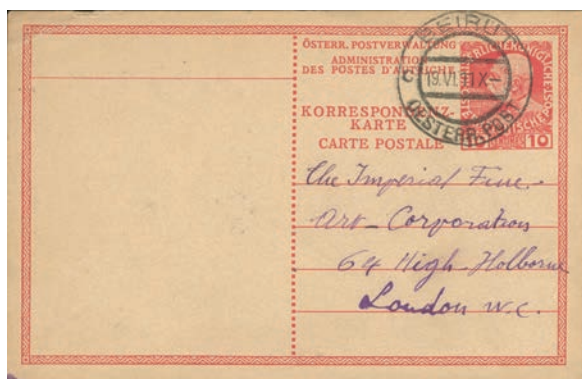 ÖSTERR. POSTVERWALTUNG
ADMINISTRATION
DES POSTES D'AUTRICHE
KORRESPONDENZ-
KARTE
CARTE POSTALE
BEIRUT
19.VI.11.X-
OESTERR. POST
10
The Imperial Fine
Art-Corporation
64 High Holborne
London W.C.